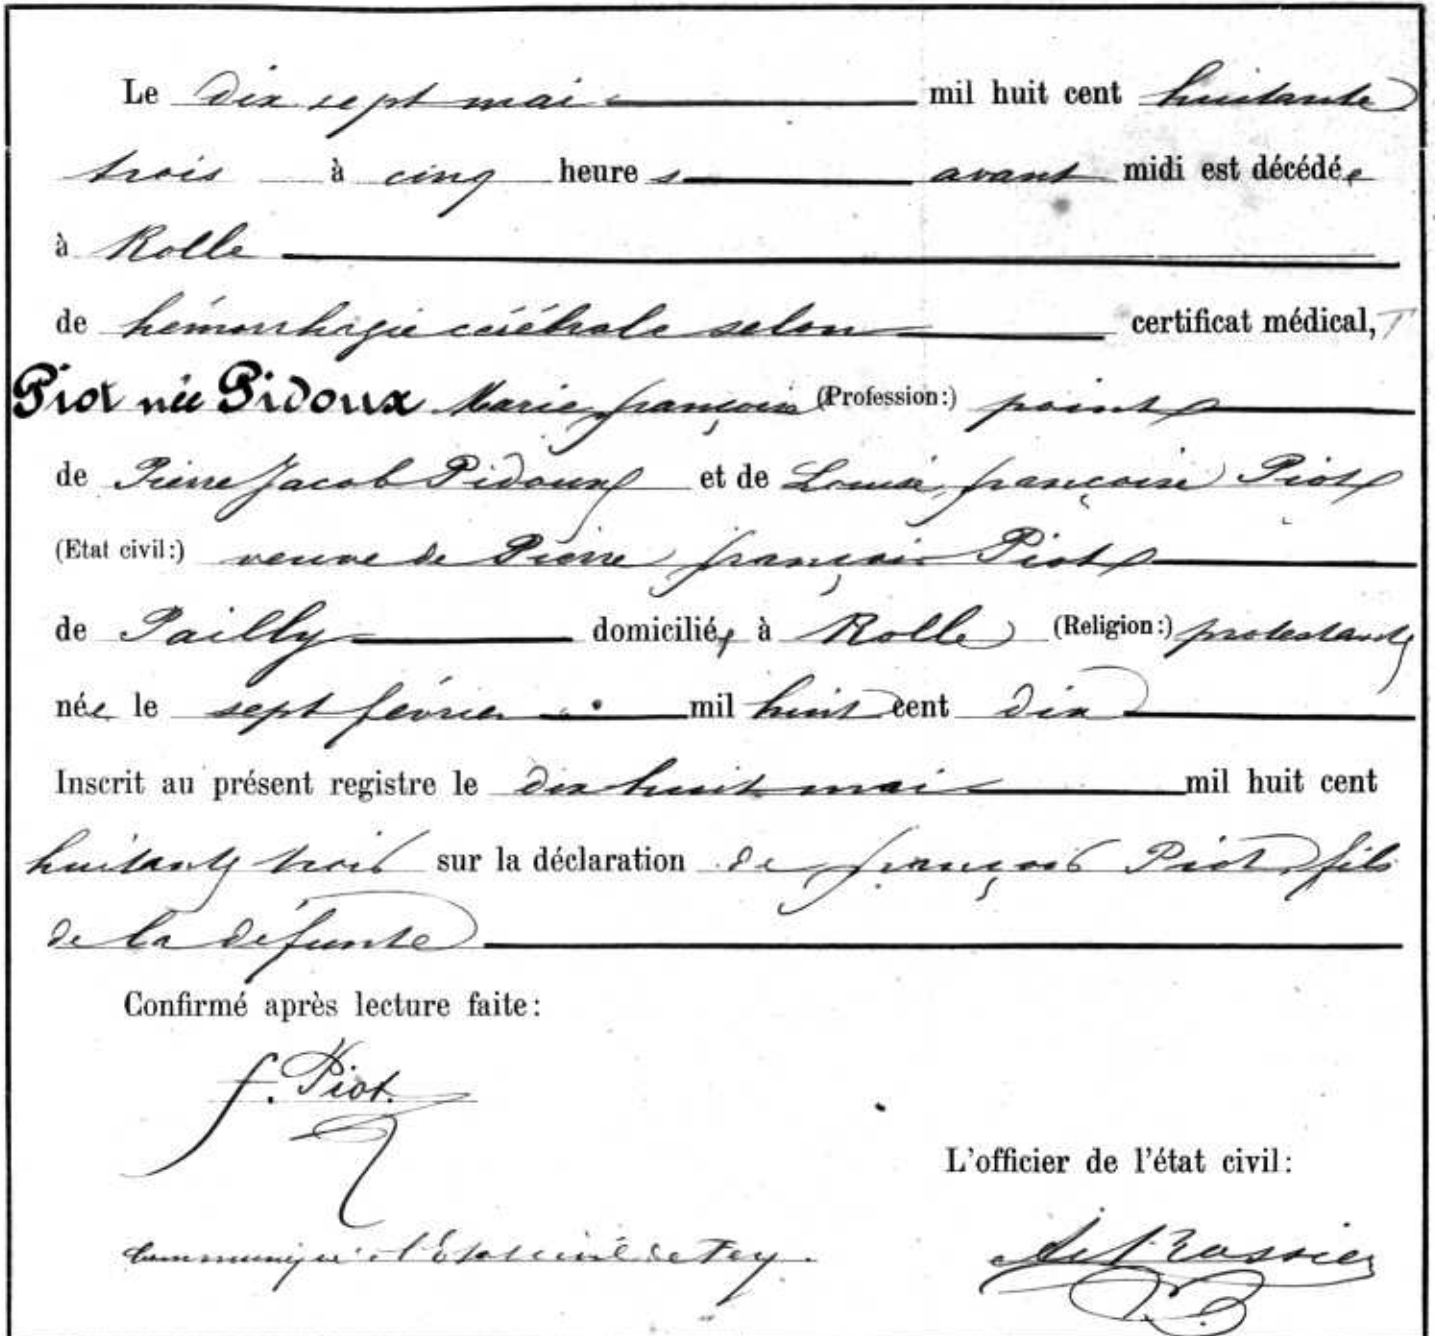 Le dix sept mai mil huit cent huitante
trois à cinq heures avant midi est décédée
à Rolle
de hémorrhagie cérébrale selon certificat médical,
Piot née Pidoux Marie françoise (Profession:) point
de Pierre Jacob Pidoux et de Louise françoise Piot
(Etat civil:) veuve de Pierre françois Piot
de Pailly domiciliée à Rolle (Religion:) protestante
née le sept février mil huit cent dix
Inscrit au présent registre le dix huit mai mil huit cent
huitante trois sur la déclaration de françois Piot, fils
de la défunte
Confirmé après lecture faite:
f. Piot.
L'officier de l'état civil:
Communiqué à l'État civil de Fey.